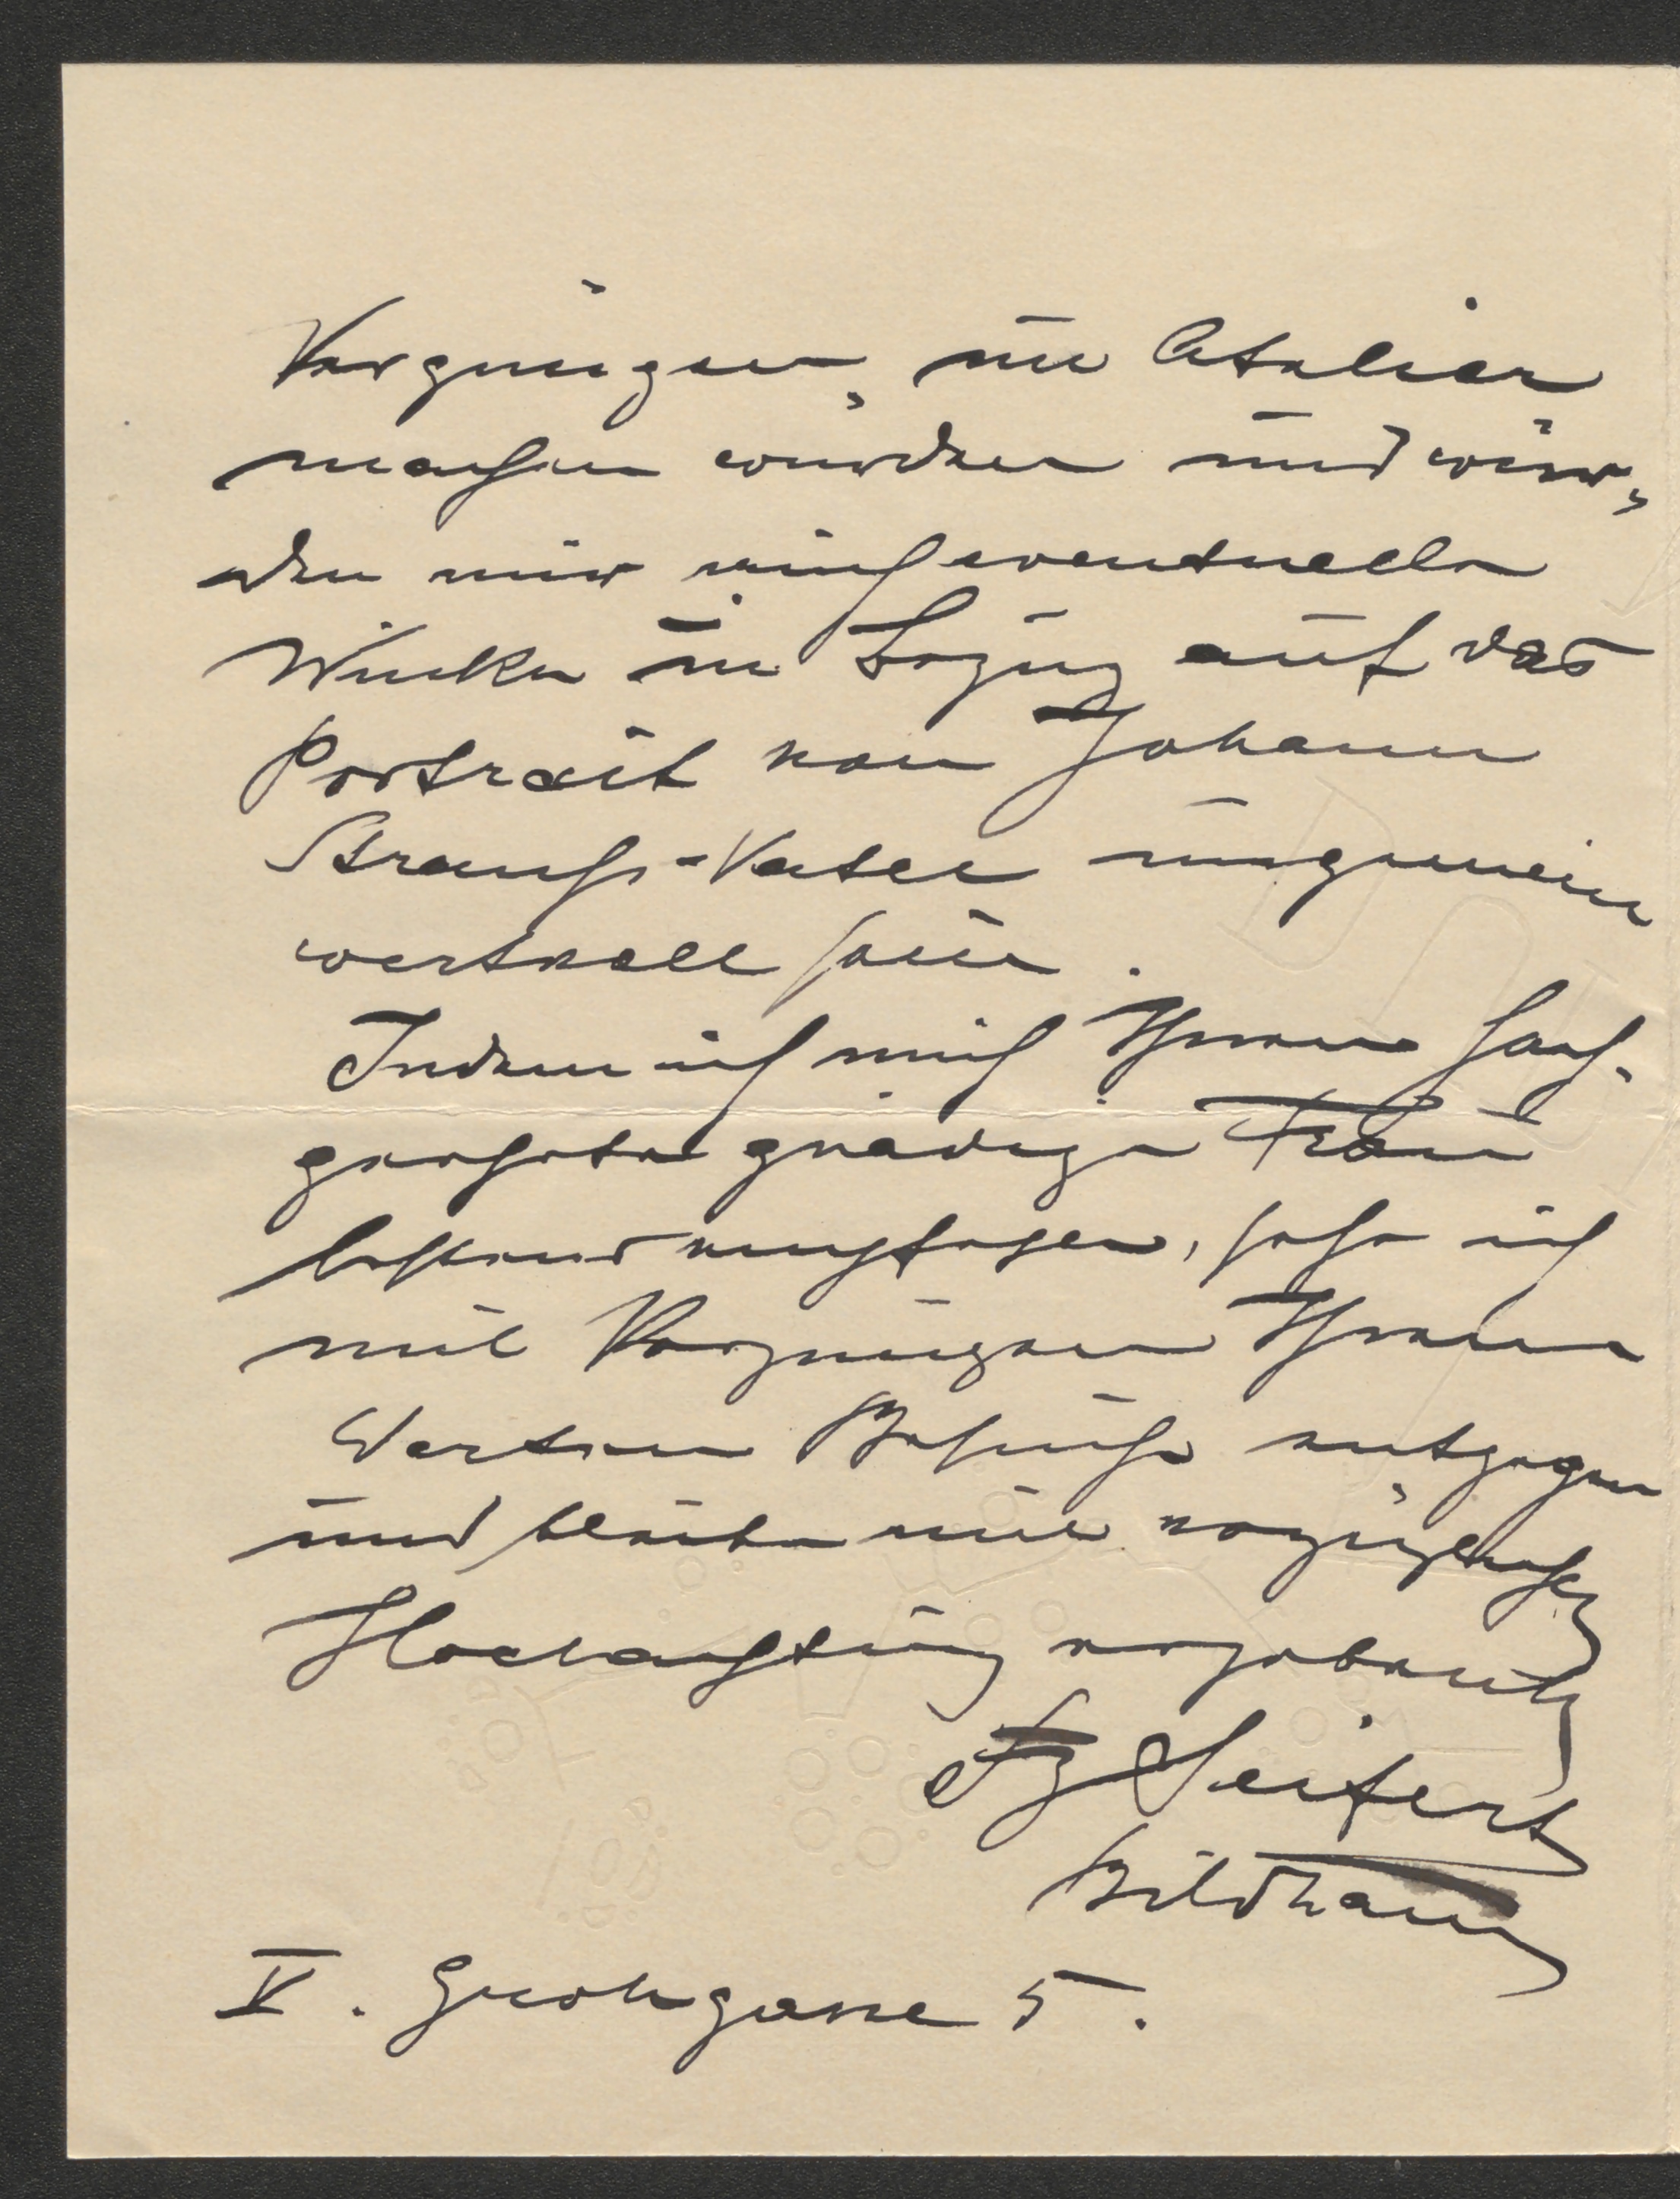 Vergnügen, im Atelier
machen würden und wür„
den mir auch eventuelle
Winke in Bezug auf das
Portrait von Johann
Strauss-Vater ungemein
wertvoll sein.
Indem ich mich Ihnen hoch-
geehrte gnädige Frau
bestens empfehlen, sehe ich
mit Vergnügen Ihrem
Werten Besuche entgegen
und bleibe mit vorzüglicher
Hochachtung ergebenst
Fz Seifert
Bildhauer
V. Grohgasse 5.